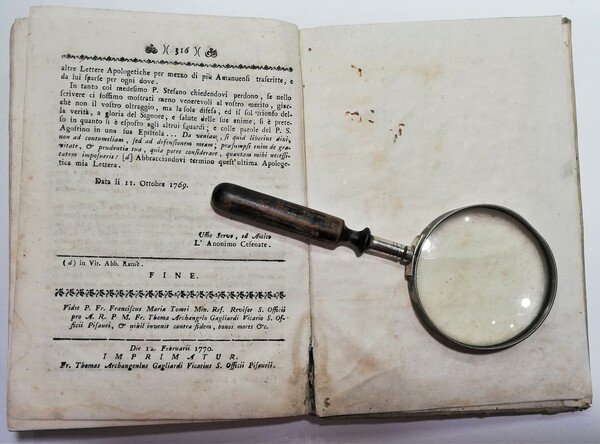 )( 316 )(
altre Lettere Apologetiche per mezzo di più Amanuensi trascritte, e
da lui sparse per ogni dove.
In tanto col medesimo P. Stefano chiedendovi perdono, se nello
scrivere ci fossimo mostrati meno venerevoli al vostro merito, giac-
chè non il vostro oltraggio, ma la sola difesa, ed il sol trionfo del-
la verità, a gloria del Signore, e salute delle sue anime, si è prete-
so in quanto si è esposto agli altrui sguardi; e colle parole del P. S.
Agostino in una sua Epistola... Da veniam, si quid liberius dixi,
non ad contumeliam, sed ad defensionem meam; præsumpsi enim de gra-
vitate, & prudentia tua, quia potes considerare, quantam mihi necessi-
tatem imposueris: (d) Abbracciandovi termino quest'ultima Apologe-
tica mia Lettera.
Data li 11. Ottobre 1769.
Vostro Servo, ed Amico
L' Anonimo Cesenate.
(d) in Vit. Abb. Ransè.
FINE.
Videt P. Fr. Franciscus Maria Tomri Min. Ref. Revisor S. Officii
pro A. R. P. M. Fr. Thoma Archangelo Gagliardi Vicario S. Of-
ficii Pisauri, & nihil invenit contra fidem, bonos mores &c.
Die 12. Februarii 1770.
IMPRIMATUR.
Fr. Thomas Archangelus Gagliardi Vicarius S. Officii Pisauri.